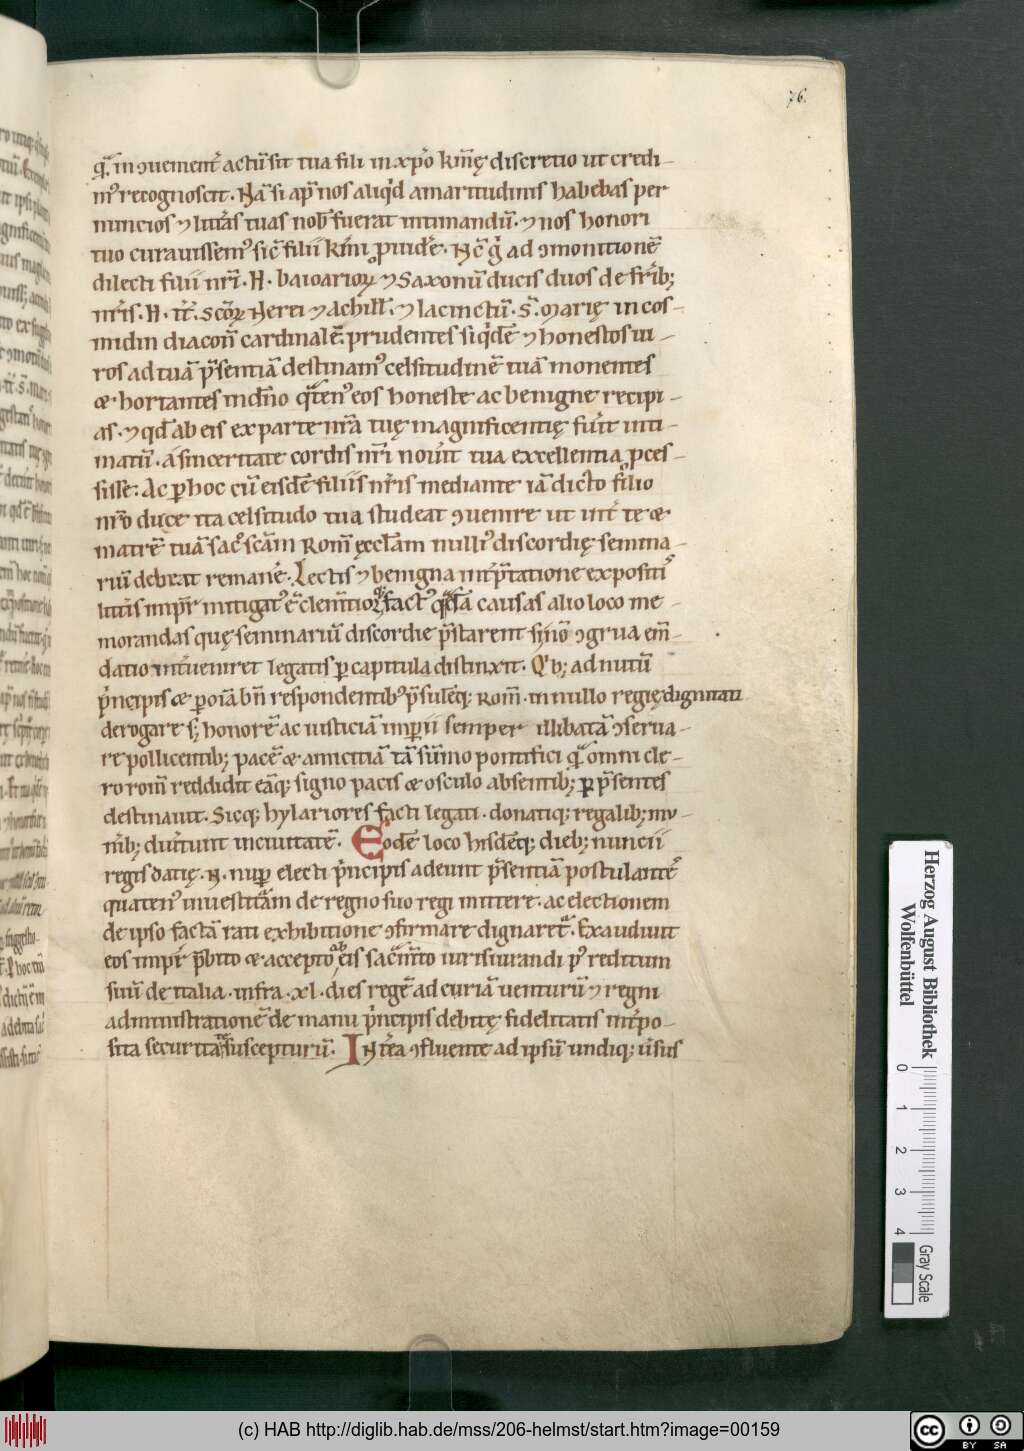 76.
qͣm in ꝯuenienť actū sit tua fili in xp̄o km̄ę discretio ut credi-
m᷒ recognoscit. Nā si ap̄ nos aliq̇d amaritudinis habebas per
nuncios ⁊ litťas tuas nob̄ fuerat intimandū. ⁊ nos honori
tuo curauissem᷒ sic̄ filii km̄i ꝓuidēre. Nc̄ g̊ ad ꝯmonitionē
dilecti filii nr̄i .H. baioarioꝝ ⁊ Saxonū ducis duos de fr̄ib;
nr̄is .H. tt̄. scōꝝ Nerei ⁊ achill̄. ⁊ Iacinctū. s̄. Marię in cos-
midin diacon̄ cardinalē. prudentes siq̇dē ⁊ honestos ui-
ros ad tuā p̄sentiā destinam᷒ celsitudinē tuā monentes
& hortantes in dn̄o qͣten᷒ eos honeste ac benigne recipi-
as. ⁊ qd̄ ab eis ex parte nr̄a tuę magnificentię fůit inti-
matū. a sinceritate cordis nr̄i noůit tua excellentia ꝓces-
sisse. Ac ꝑ hoc cū eisdē filiis nr̄is mediante iā dicto filio
nr̄o duce ita celsitudo tua studeat ꝯuenire ut inť te &
matrē tuā sac̄ scām Rom̄ ęccl̄am nulli᷒ discordię semina-
riū debeat remanē. Lectis ⁊ benigna inťp̄tatione expositis
litťis imp̄r mitigat᷒ ē clem̄tioꝝ fact᷒ qͣsdā causas alio loco me-
morandas quę seminariū discordie p̄starent si n̄ ꝯgrua em̄-
datio inťueniret legatis ꝑ capitula distinxit. Q'b; ad nutū
p̍ncipis & ꝑ oīa bn̄ respondentib᷒ p̄sulēq; Rom̄. in nullo regię dignitati
derogare s; honorē ac iusticiā imꝑii semper illibatā ꝯserua-
re pollicentib; pacē & amicitiā tā sūmo pontifici qͣm omni cle-
ro rom̄ reddidit eāq; signo pacis & osculo absentib; ꝑ p̄sentes
destinauit. Sicq; hylariores facti legati. donatiq; regalib; mu-
nīb; duťtunt in ciuitatē. Eodē loco hisdēq; dieb; nuncii
regis datię .N. nuꝑ electi p̍ncipis adeunt p̄sentiā postulantes
quaten᷒ inuestitͣam de regno suo regi mittere. ac electionem
de ipso factā rati exhibitione ꝯfirmare dignaretͣ. Exaudiuit
eos imp̄r p̄bito & accepto ab eis sacͣm̄to iurisiurandi p᷒ reditum
suū de italia. infra .xl. dies regē ad curiā uenturū ⁊ regni
administrationē de manu p̍ncipis debitę fidelitatis inťpo-
sita securitate suscepturū. INťea ꝯfluente ad ipsū undiq; ůsus
Herzog August Bibliothek
Wolfenbüttel
0 1 2 3 4
Gray Scale
(c) HAB http://diglib.hab.de/mss/206-helmst/start.htm?image=00159
cc BY SA